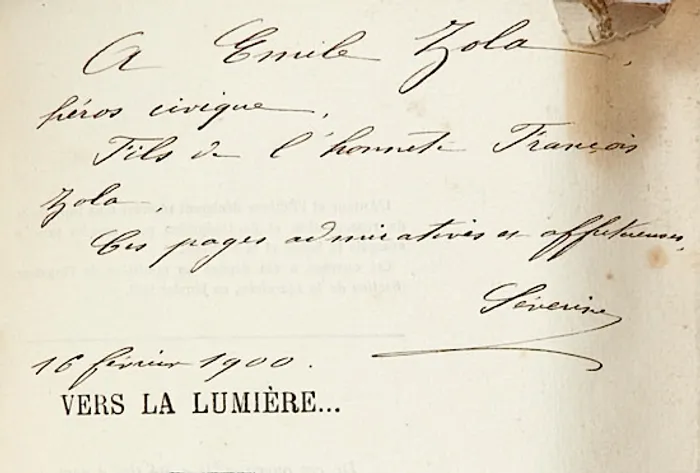 A Emile Zola,
héros civique,
Fils de l'honnête François
Zola,
Ces pages admiratives et affectueuses,
Séverine
16 février 1900.
VERS LA LUMIÈRE...